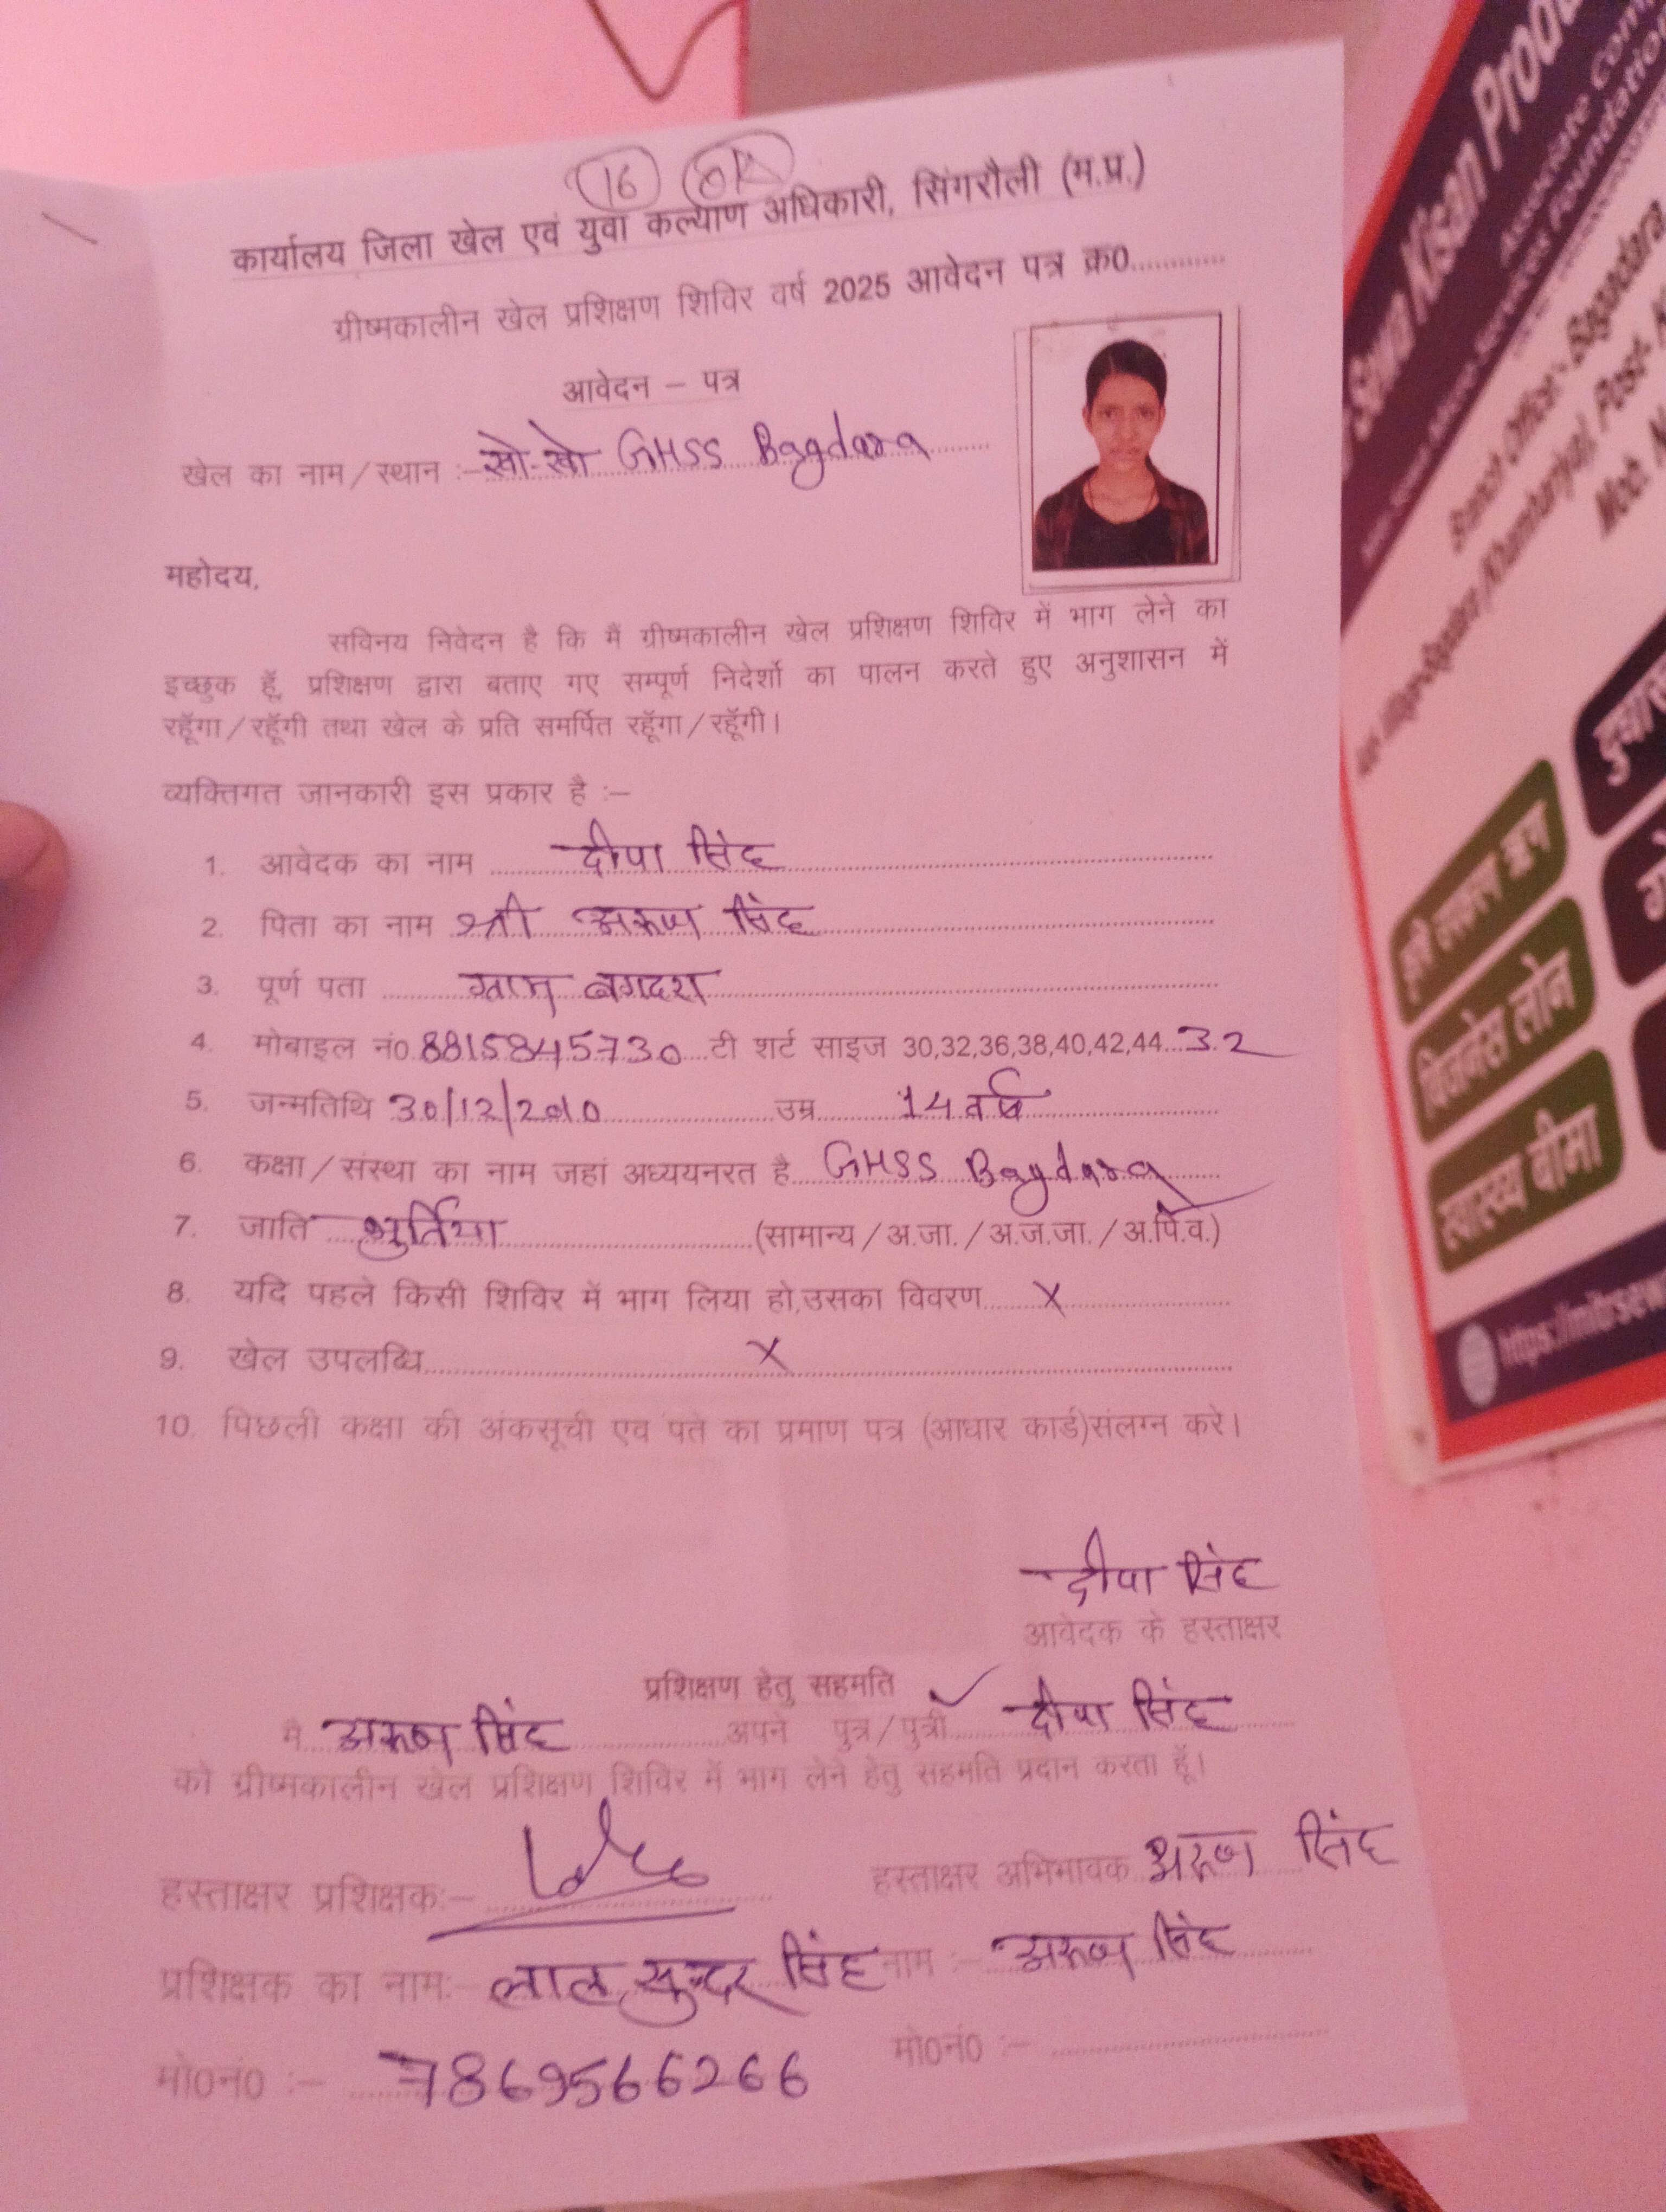 16 OK
कार्यालय जिला खेल एवं युवा कल्याण अधिकारी, सिंगरौली (म.प्र.)
ग्रीष्मकालीन खेल प्रशिक्षण शिविर वर्ष 2025 आवेदन पत्र क्र0............
आवेदन – पत्र
खेल का नाम/स्थान :- खो-खो GHSS Bagdara
महोदय,
सविनय निवेदन है कि मैं ग्रीष्मकालीन खेल प्रशिक्षण शिविर में भाग लेने का
इच्छुक हूँ, प्रशिक्षण द्वारा बताए गए सम्पूर्ण निदेर्शो का पालन करते हुए अनुशासन में
रहूँगा/रहूँगी तथा खेल के प्रति समर्पित रहूँगा/रहूँगी।
व्यक्तिगत जानकारी इस प्रकार है :–
1. आवेदक का नाम दीपा सिंह
2. पिता का नाम श्री अरूण सिंह
3. पूर्ण पता ग्राम बगदरा
4. मोबाइल नं0 8815845730 टी शर्ट साइज 30,32,36,38,40,42,44 32
5. जन्मतिथि 30/12/2010 उम्र 14 वर्ष
6. कक्षा/संस्था का नाम जहां अध्ययनरत है GHSS Bagdara
7. जाति भुर्तिया (सामान्य/अ.जा./अ.ज.जा./अ.पि.वे.)
8. यदि पहले किसी शिविर में भाग लिया हो,उसका विवरण X
9. खेल उपलब्धि X
10. पिछली कक्षा की अंकसूची एव पते का प्रमाण पत्र (आधार कार्ड)संलग्न करे।
दीपा सिंह
आवेदक के हस्ताक्षर
प्रशिक्षण हेतु सहमति
मै अरूण सिंह अपने पुत्र/पुत्री दीपा सिंह
को ग्रीष्मकालीन खेल प्रशिक्षण शिविर में भाग लेने हेतु सहमति प्रदान करता हूँ।
हस्ताक्षर प्रशिक्षक:– हस्ताक्षर अभिभावक अरूण सिंह
प्रशिक्षक का नाम:- लाल सुन्दर सिंह नाम :- अरूण सिंह
मो0नं0 :– 7869566266 मो0नं0 :–
Sewa Kisan
Associate
Foundation
Branch Office:- Bagadara
Post-
Mob. N
कृषि उपकरण ऋण
बिजनेस लोन
स्वास्थ्य बीमा